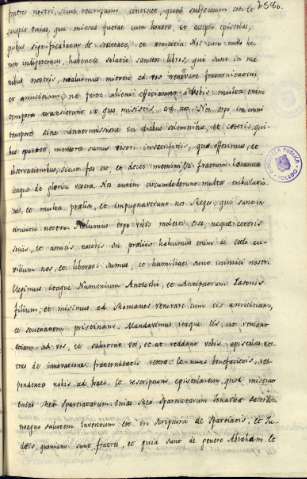 fratres nostri, sicut rescriptum continet, quod subjectum est et
cepit Onias, qui missus fuerat cum honore, et accepit epistolas,
quibus significabatur de societate, et amicitia. Nos cum nullo ho
rum indigeremus, habentes solatio sanctos libros, qui sunt in ma
nibus nostris, maluimus mittere ad vos renovare fraternitatem
et amicitiam, ne forte alieni efficiamur a vobis, multa enim
tempora transierunt ex quo misistis ad nos. Nos ergo in omni
tempore sine intermissione in diebus solemnibus, et ceteris, qui
bus oportet, memores sumus vestri in sacrificiis, quæ offerimus, et
observationibus, sicut fas est, et decet meminisse fratrum. Lætamur
itaque de gloria vestra. Nos autem circumdederunt multæ tribulatio
nes, et multa prælia, et impugnaverunt nos Reges, qui sunt in
circuitu nostro. Noluimus ergo vobis molesti esse, neque ceteris
sociis, et amicis nostris in præliis habuimus enim de cœlo au
xilium nos, et liberati sumus, et humiliati sunt inimici nostri
Elegimus itaque Numenium Antiochi, et Antipatrem Jasonis
filium, et misimus ad Romanos renovare cum eis amicitiam,
et societatem pristinam. Mandavimus itaque eis, ut veniant
etiam ad vos, et salutent vos, et ut reddant vobis epistolas nos
tras de innovatione fraternitatis nostræ et nunc benefacietis, res
pondentes nobis ad hæc, et rescriptum epistolarum, quod miserat
Oniæ Rex Spartiatarum Oniæ sacerdoti
magno salutem Inventum est in scriptura de Spartiatis, et Ju
dæis, quoniam sunt fratres, et quia sunt de genere Abraham et